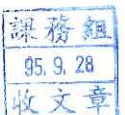 課務組
95.9.28
收文章